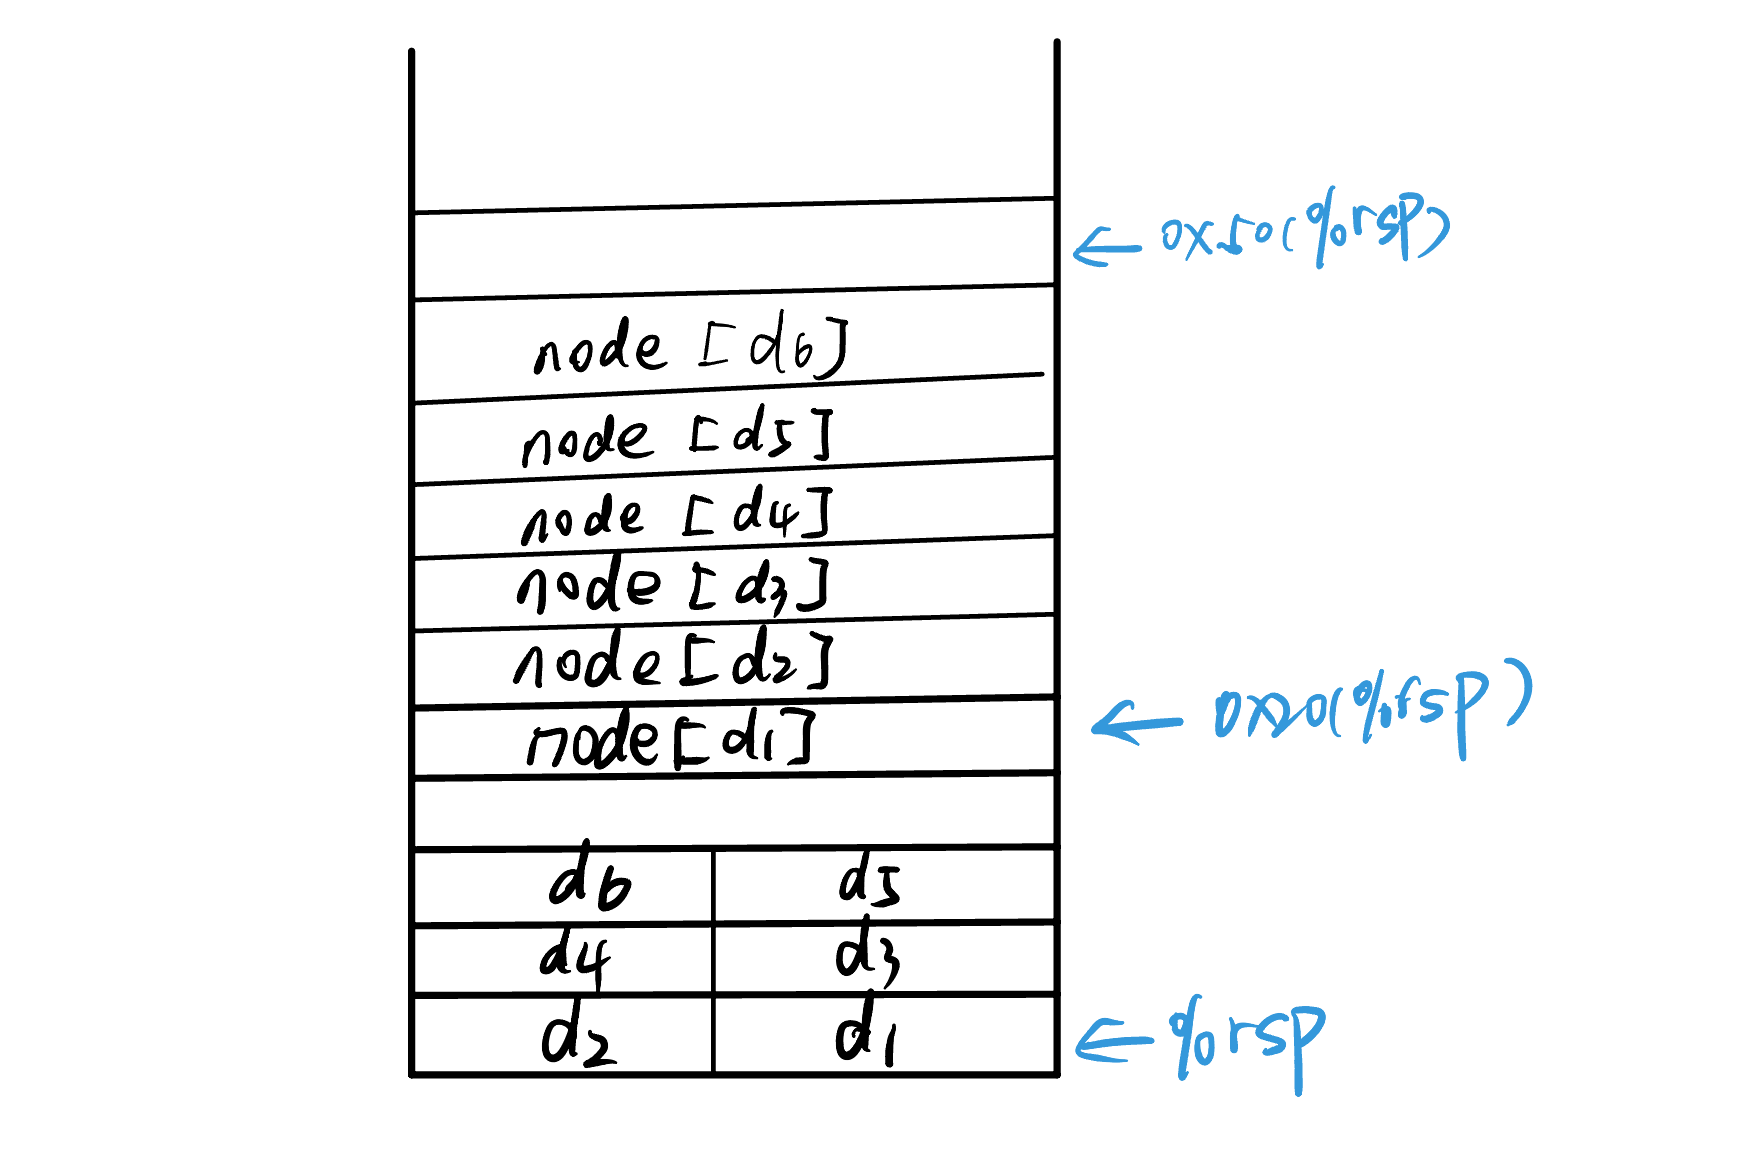 0x50(%rsp)
node [d6]
node [d5]
node [d4]
node [d3]
node [d2]
node [d1] 0x20(%rsp)
d6 d5
d4 d3
d2 d1 %rsp